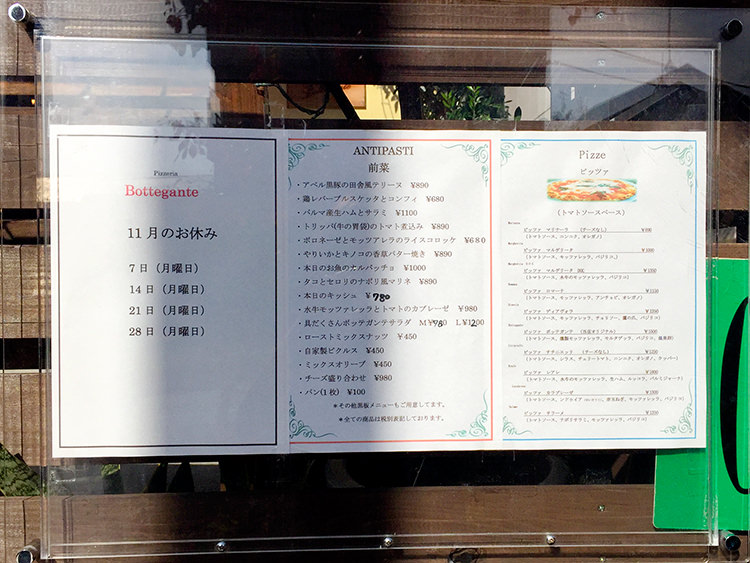 Pizzeria
Bottegante
11月のお休み
7日（月曜日）
14日（月曜日）
21日（月曜日）
28日（月曜日）
ANTIPASTI
前菜
・アベル黒豚の田舎風テリーヌ ¥890
・鶏レバーブルスケッタとコンフィ ¥680
・パルマ産生ハムとサラミ ¥1100
・トリッパ(牛の胃袋)のトマト煮込み ¥890
・ボロネーゼとモッツアレラのライスコロッケ ¥680
・やりいかとキノコの香草バター焼き ¥890
・本日のお魚のカルパッチョ ¥1000
・タコとセロリのナポリ風マリネ ¥890
・本日のキッシュ ¥780
・水牛モッツァレッラとトマトのカプレーゼ ¥980
・具だくさんボッテガンテサラダ
・ローストミックスナッツ ¥450
・自家製ピクルス ¥450
・ミックスオリーブ ¥450
・チーズ盛り合わせ ¥980
・パン(1枚) ¥100
＊その他黒板メニューもご用意してます。
＊全ての商品は税別表記しております。
Pizze
ピッツァ
（トマトソースベース）
ピッツァ マリナーラ （チーズなし）
(トマトソース、ニンニク、オレガノ)
ピッツァ マルゲリータ
(トマトソース、モッツァレッラ、バジリコ)
ピッツァ マルゲリータ DOC
(トマトソース、水牛のモッツァレッラ、バジリコ)
ピッツァ ロマーナ
(トマトソース、モッツァレッラ、アンチョビ、オレガノ)
ピッツァ ディアヴォラ
ピッツァ ボッテガンテ
ピッツァ チチニエッリ （チーズなし）
ピッツァ
ピッツァ
ピッツァ サラーメ